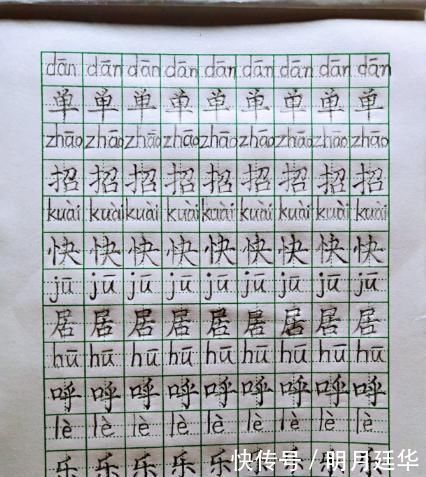 dān dān dān dān dān dān dān dān dān
单 单 单 单 单 单 单 单 单
zhāo zhāo zhāo zhāo zhāo zhāo zhāo zhāo zhāo
招 招 招 招 招 招 招 招 招
kuài kuài kuài kuài kuài kuài kuài kuài kuài
快 快 快 快 快 快 快 快 快
jū jū jū jū jū jū jū jū jū
居 居 居 居 居 居 居 居 居
hū hū hū hū hū hū hū hū hū
呼 呼 呼 呼 呼 呼 呼 呼 呼
lè lè lè lè lè lè lè lè lè
乐 乐 乐 乐 乐 乐 乐 乐 乐
快传号 / 明月廷华